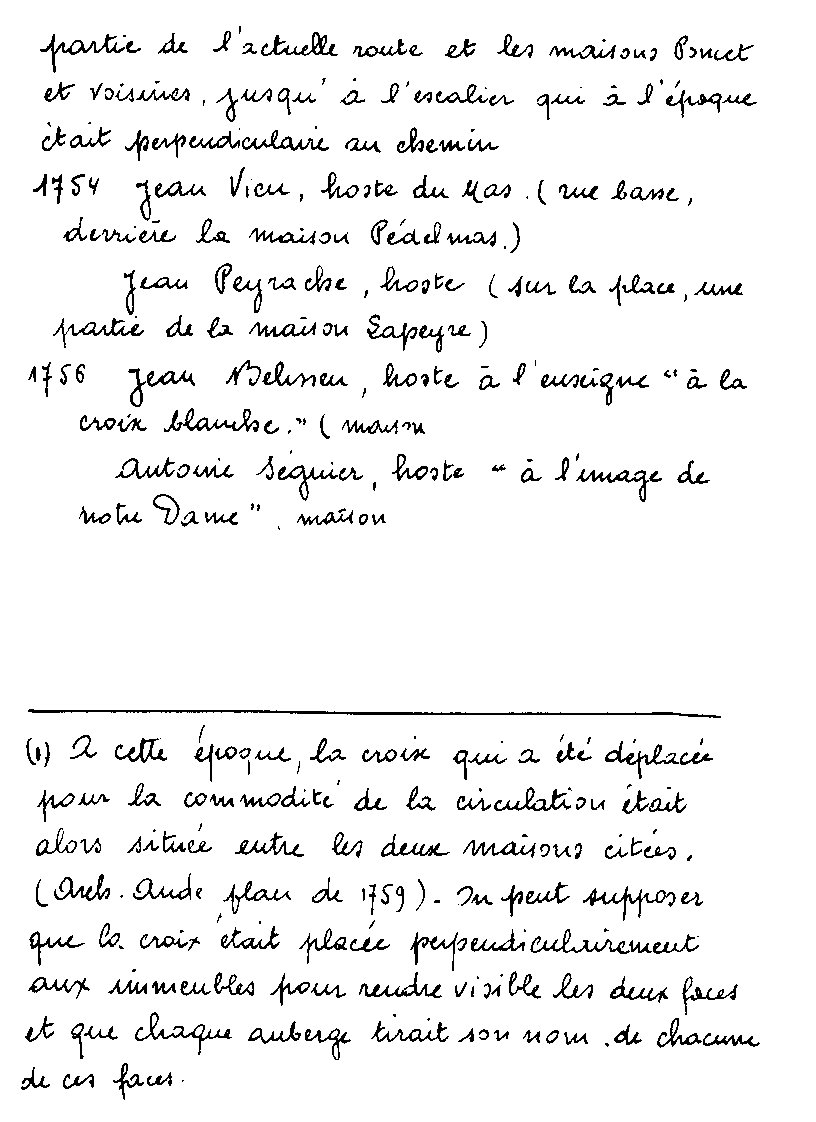 partie de l'actuelle route et les maisons Poncet
et voisines, jusqu'à l'escalier qui à l'époque
était perpendiculaire au chemin
1754 Jean Vieu, hoste du Mas. (rue basse,
derrière la maison Pédelmas.)
Jean Peyrache, hoste (sur la place, une
partie de la maison Lapeyre)
1756 Jean, hoste à l'enseigne "à la
croix blanche." (maison
Antoine Séguier, hoste "à l'image de
notre Dame". maison
(1) A cette époque, la croix qui a été déplacée
pour la commodité de la circulation était
alors située entre les deux maisons citées.
(Arch. Aude plan de 1759). On peut supposer
que la croix était placée perpendiculairement
aux immeubles pour rendre visible les deux faces
et que chaque auberge tirait son nom de chacune
de ces faces.